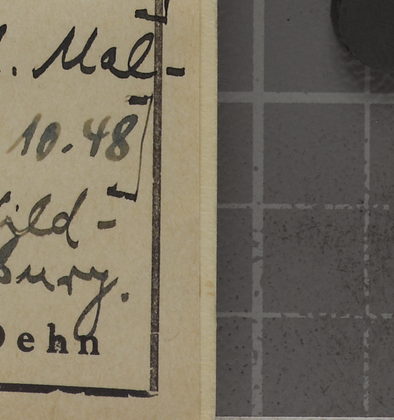 . Mal-
10.48
ild-
bury.
Dehn